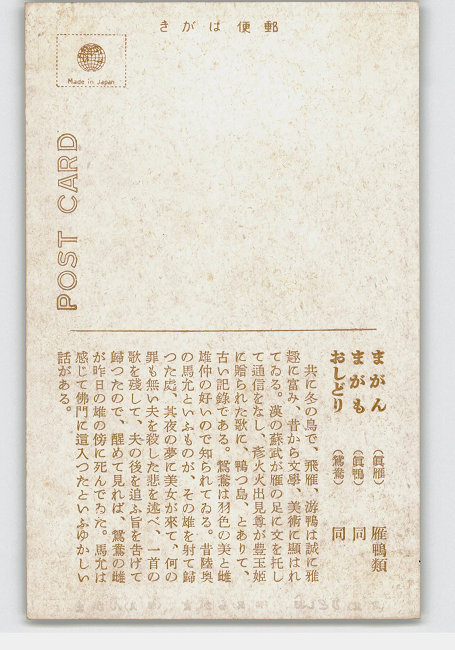 きがはば便郵
Made in Japan
POST CARD
まがん（眞雁）雁鴨類
まがも（眞鴨）同
おしどり（鴛鴦）同
共に冬の鳥で、飛雁、游鴨は誠に雅
趣に富み、昔から文學、美術に顯はれ
てゐる。漢の蘇武が雁の足に文を托し
て通信をなし、彥火火出見尊が豊玉姬
に贈られた歌に、鴨つ島、とありて、
古い記錄である。鴛鴦は羽色の美と雌
雄仲の好いので知られてゐる。昔陸奥
の馬允といふものが、その雄を射て歸
つた處、其夜の夢に美女が來て、何の
罪も無い夫を殺した悲を述べ、一首の
歌を殘して、夫の後を追ふ旨を吿げて
歸つたので、醒めて見れば、鴛鴦の雌
が昨日の雄の傍に死んでゐた。馬允は
感じて佛門に這入つたといふゆかしい
話がある。